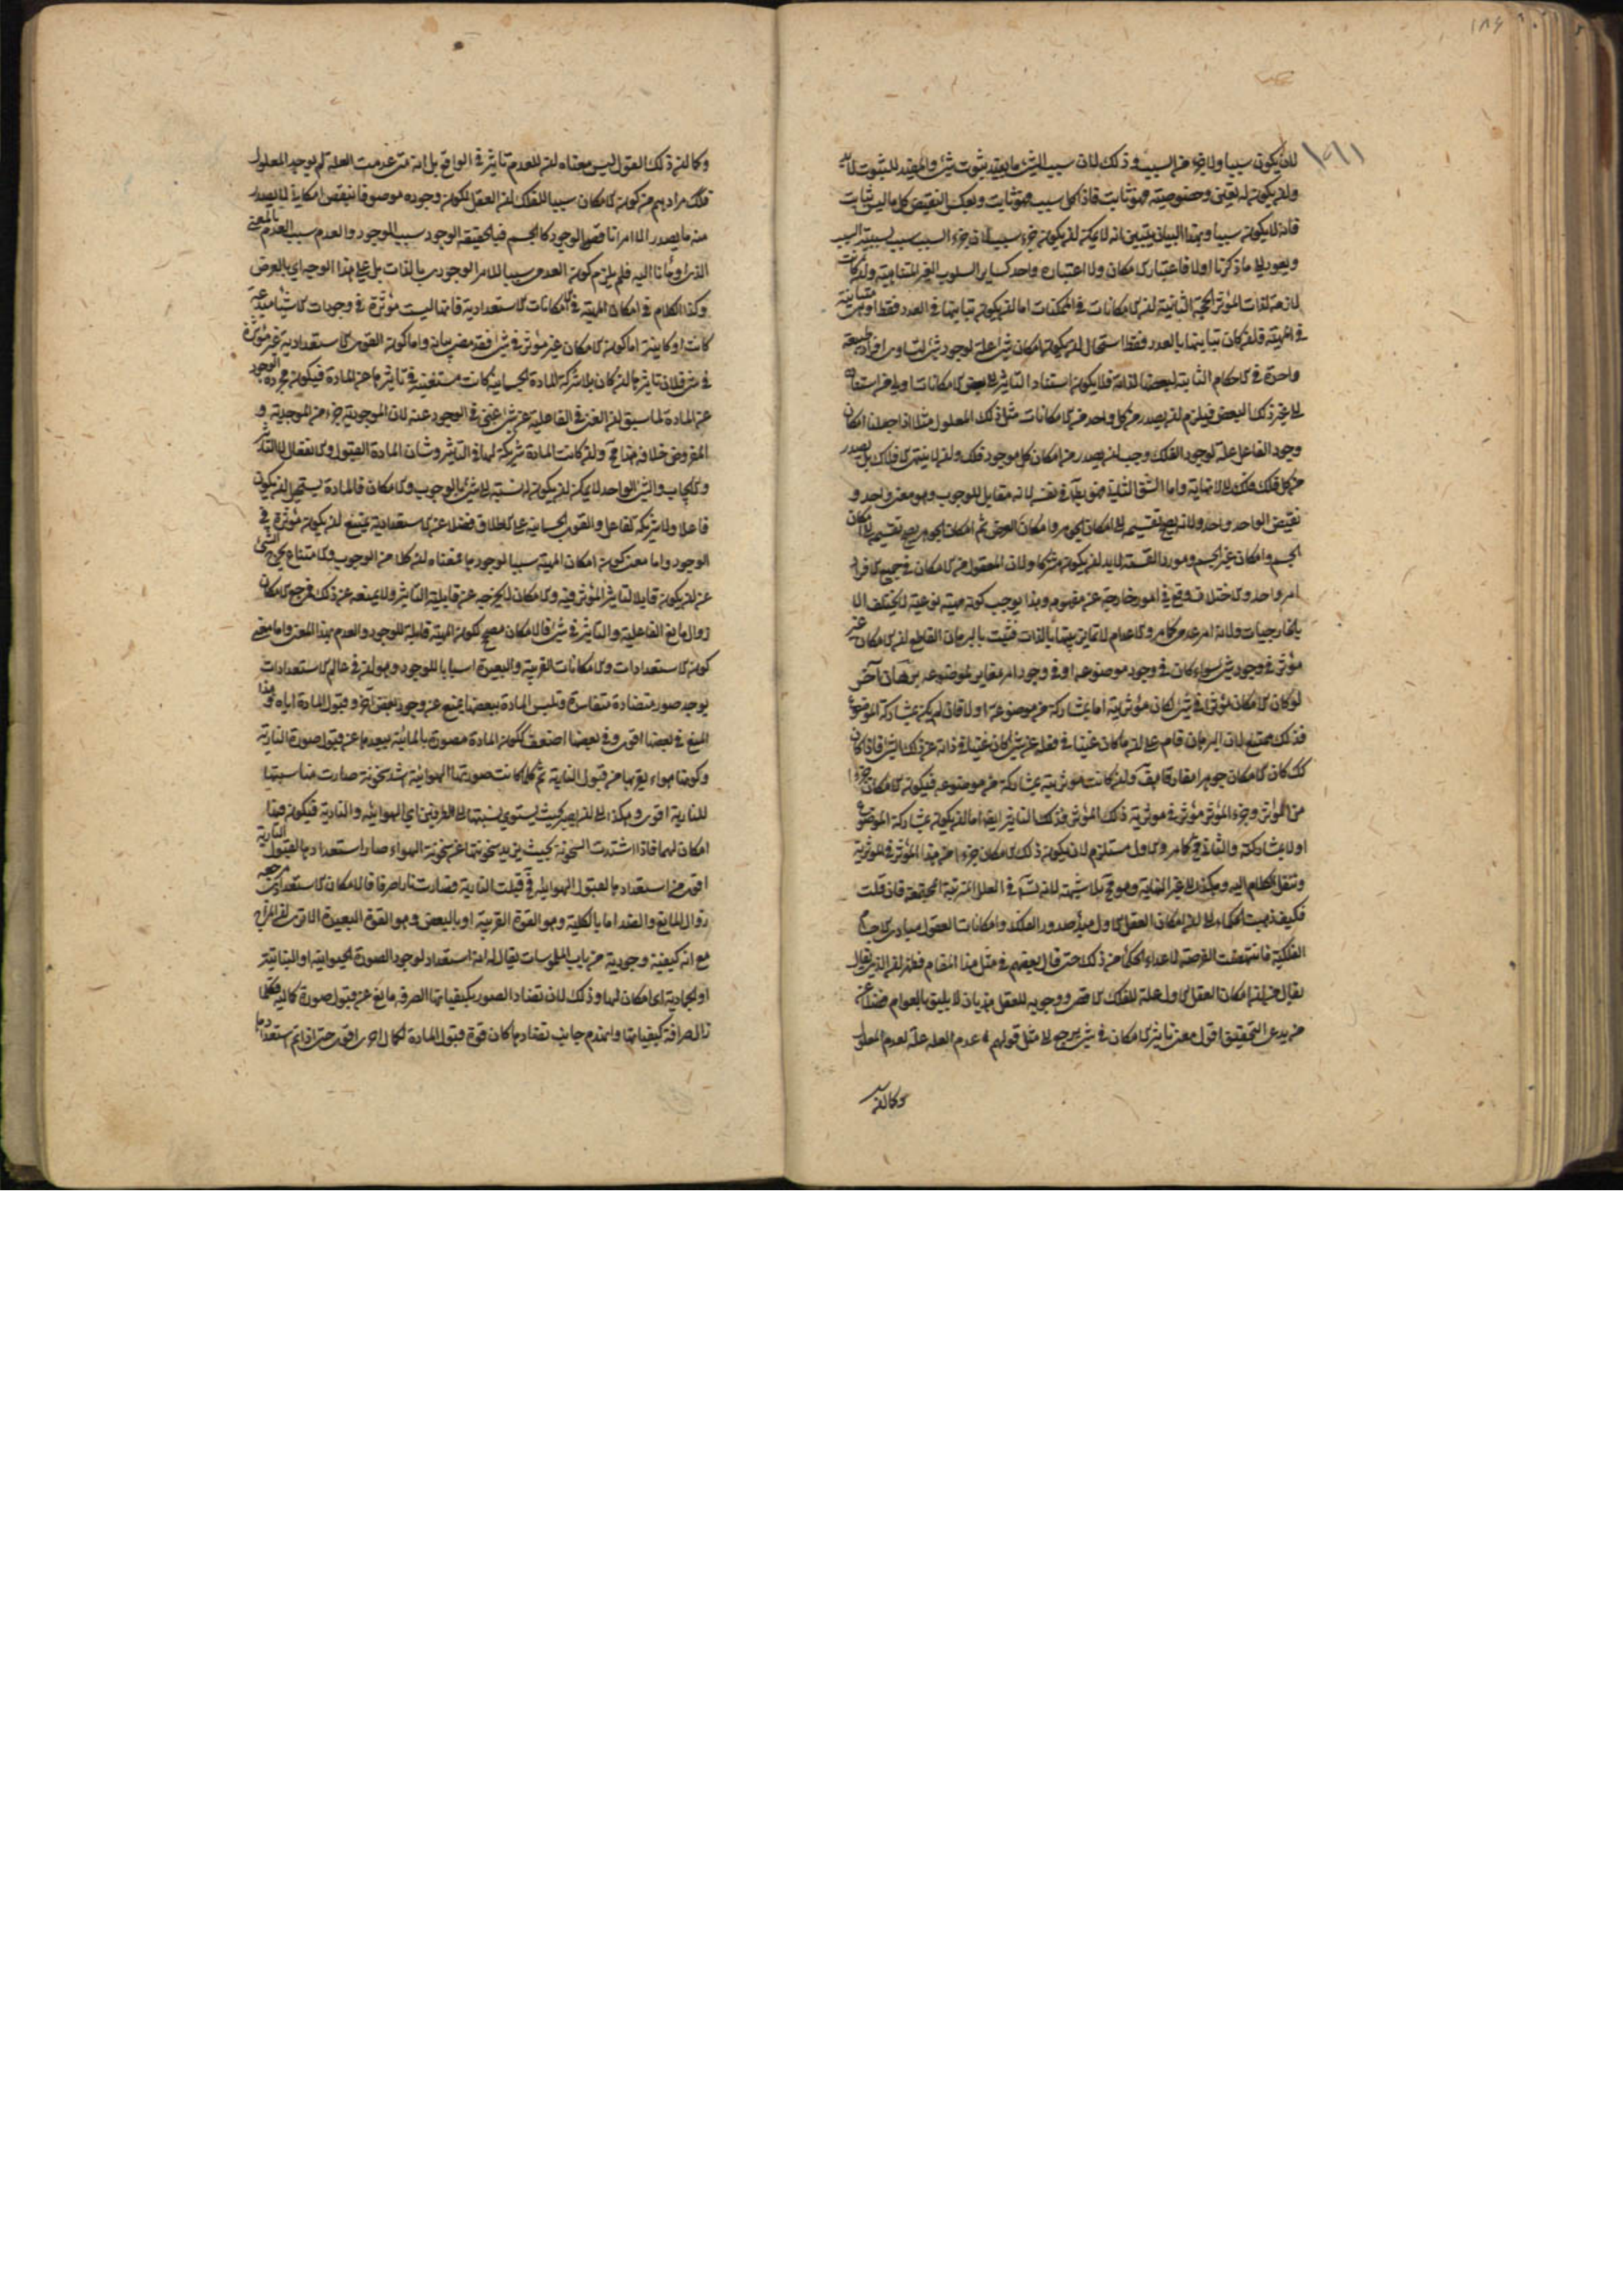 ١٨٤
لان يكون سببا ولا جزء من السبب وذلك لان سبب الشئ ما يفيد ثبوت شئ والمفيد للثبوت لا بد
وان يكون له تعين وخصوصية فهو ثابت فاذا كل سبب فهو ثابت وبعكس النقيض كل ما ليس بثابت
فانه لا يكون سببا وبهذا البيان يتبين انه لا يمكن ان يكون جزء سبب لان جزء السبب سبب لسببية السبب
ويعود الى ما ذكرنا اولا فاعتبار الامكان ولا اعتباره واحد كساير السلوب الغير المتناهية وان كانت
لازمة لذات المؤثر الحجة الثانية ان الامكانات في الممكنات اما ان يكون تباينها في العدد فقط او هي متباينة
في المهية فان كان تباينها بالعدد فقط استحال ان يكون امكان شئ علة لوجود شئ لتساوى افراد طبيعة
واحدة في الاحكام الثابتة لبعضها لذاته فلا يكون استناد التاثير الى بعض الامكانات اولى من استناده
الى غير ذلك البعض فيلزم ان يصدر من كل واحد من الامكانات مثل ذلك المعلول مثلا اذا جعلنا امكان
وجود الفاعل علة لوجود الفلك وجب ان يصدر من امكان كل موجود فلك وان لا ينتهى الافلاك بل يصدر
من كل فلك فلك الى لا نهاية واما الشق الثاني فهو بط في نفسه لانه مقابل للوجوب وهو معنى واحد و
نقيض الواحد واحد ولانه يصح تقسيمه الى امكان الجوهر وامكان العرض ثم امكان الجوهر يصح تقسيمه الى امكان
الجسم وامكان غير الجسم ومورد القسمة لابد ان يكون مشتركا ولان المعقول من الامكان في جميع الافراد
امر واحد والاختلاف وقع في امور خارجة عن مفهومه وهذا يوجب كونه مهية نوعية لا يختلف الا
بالخارجيات ولانه امر عدمى كما مر والاعدام لا تمايز بينها بالذات فثبت بالبرهان القاطع ان الامكان غير
مؤثر في وجود شئ سواء كان في وجود موضوعه او في وجود امر مغاير لموضوعه برهان آخر
لو كان الامكان مؤثرا في شئ لكان مؤثريته اما بمشاركة من موضوعه او لا فان لم يكن بمشاركة الموضوع
فذلك ممتنع لان البرهان قام على ان ما كان غنيا في فعله عن شئ كان غنيا في ذاته عن ذلك الشئ فاذا كان
كك كان الامكان جوهرا مفارقا هف وان كانت مؤثريته بمشاركة من موضوعه فيكون الامكان جزءا
من المؤثر وجزء المؤثر مؤثر في مؤثرية ذلك المؤثر فذلك التاثير ايضا اما ان يكون بمشاركة الموضوع
او لا بمشاركته والثاني مح كما مر والاول مستلزم لان يكون ذلك الامكان جزءا من هذا المؤثر في المؤثرية
وننقل الكلام اليه وهكذا الى غير النهاية وهو مح بلا شبهة لانه تس في العلل المترتبة المجتمعة فان قلت
فكيف ذهبت الحكماء الى ان امكان العقل الاول مبدأ صدور الفلك وامكانات العقول مبادى الاجسام
الفلكية فانتهضت الفرصة لاعداء الحكماء من ذلك حتى قال بعضهم في مثل هذا المقام فظهر ان الذى يقال
يقال من ان امكان العقل الاول علة للفلك الاقصى ووجوبه للعقل هذيان لا يليق بالعوام فضلا عن
من يدعى التحقيق اقول معنى تاثير الامكان في شئ يرجع الى مثل قولهم عدم العلة علة لعدم المعلول
وكما ان
وكما ان ذلك القول ليس معناه ان للعدم تاثيرا في الواقع بل انه متى عدمت العلة لم يوجد المعلول
فكك مرادهم من كون الامكان سببا للفلك ان العقل لكون وجوده موصوفا بنقص امكاني لا يصدر
منه ما يصدر الا امرا ناقص الوجود كالجسم فبالحقيقة الوجود سبب للوجود والعدم سبب العدم بالمعنى
الذى اومأنا اليه فلم يلزم كون العدمى سببا للامر الوجودى بالذات بل على هذا الوجه اي بالعرض
وكذا الكلام في امكان المهية في الامكانات الاستعدادية فانها ليست مؤثرة في وجودات الاشياء مبدعة
كانت او كاينة اما كون الامكان غير مؤثر في شئ فقد مضى بيانه واما كون القوى الاستعدادية غير مؤثرة
في شئ فلان تاثيرها ان كان بلا شركة المادة الجسمانية كانت مستغنية في تاثيرها عن المادة فيكون مجردة الوجود
عن المادة لما سبق ان الغنى في الفاعلية عن شئ غنى في الوجود عنه لان الموجودية جزء من الموجدية و
المفروض خلافه هذا مح وان كانت المادة شريكة لها في التاثير وشان المادة القبول والانفعال لا التاثير
والايجاب والشئ الواحد لا يمكن ان يكون له نسبة الى شئ بالوجوب والامكان فالمادة يستحيل ان يكون
فاعلا ولا شريكة لفاعل والقوى الجسمانية على الاطلاق فضلا عن الاستعدادية يمتنع ان يكون مؤثرة في
الوجود واما معنى كون امكان المهية سببا لوجودها فمعناه ان كلا من الوجوب والامتناع يخرج الشئ
عن ان يكون قابلا لتاثير المؤثر فيه والامكان لا يخرجه عن قابلية التاثير ولا يمنعه عن ذلك فرجع الامكان
زوال مانع الفاعلية والتاثير في شئ فالامكان مصحح لكون المهية قابلة للوجود والعدم بهذا المعنى واما معنى
كون الاستعدادات والامكانات القريبة والبعيدة اسبابا للوجود فهو انه في عالم الاستعدادات
يوجد صور متضادة متفاسدة وتلبس المادة ببعضها يمنع عن وجود بعض آخر وقبول المادة اياه وهذا
المنع في بعضها اقوى وفي بعضها اضعف ككون المادة مصورة بالمائية يبعدها عن قبول صورة النارية
وكونها هواء يقربها من قبول النارية ثم كلما كانت صورتها الهوائية اشد سخونة صارت مناسبتها
للنارية اقوى وهكذا الى ان يصير بحيث يستوي نسبتها الى الطرفين اي الهوائية والنارية فيكون فيها
امكان لهما فاذا اشتدت السخونة بحيث يزيد سخونتها عن سخونة الهواء صار استعدادها لقبول النارية
اقوى من استعدادها لقبول الهوائية في قبلت النارية وصارت نارا صرفا فالامكان الاستعدادى مرجعه
زوال المانع والضد اما بالكلية وهو القوة القريبة او بالبعض وهو القوة البعيدة الا ترى ان المزاج
مع انه كيفية وجودية من باب الملموسات يقال له انه استعداد لوجود الصورة الحيوانية او النباتية
او الجمادية اى امكان لها وذلك لان تضاد الصور بكيفياتها الصرفة مانع عن قبول صورة كمالية فكلما
زال صرافة كيفياتها وانهدم جانب تضادها كان قوة قبول المادة لكمال اخرى اقوى حتى اذا تم استعدادها